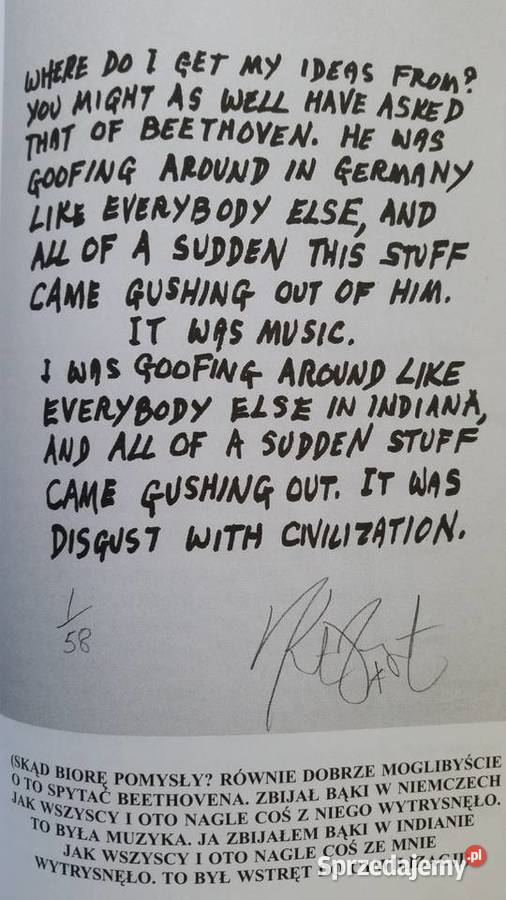 WHERE DO I GET MY IDEAS FROM?
YOU MIGHT AS WELL HAVE ASKED
THAT OF BEETHOVEN. HE WAS
GOOFING AROUND IN GERMANY
LIKE EVERYBODY ELSE, AND
ALL OF A SUDDEN THIS STUFF
CAME GUSHING OUT OF HIM.
IT WAS MUSIC.
I WAS GOOFING AROUND LIKE
EVERYBODY ELSE IN INDIANA,
AND ALL OF A SUDDEN STUFF
CAME GUSHING OUT. IT WAS
DISGUST WITH CIVILIZATION.
1/58
(SKĄD BIORĘ POMYSŁY? RÓWNIE DOBRZE MOGLIBYŚCIE
O TO SPYTAĆ BEETHOVENA. ZBIJAŁ BĄKI W NIEMCZECH
JAK WSZYSCY I OTO NAGLE COŚ Z NIEGO WYTRYSNĘŁO.
TO BYŁA MUZYKA. JA ZBIJAŁEM BĄKI W INDIANIE
JAK WSZYSCY I OTO NAGLE COŚ ZE MNIE
WYTRYSNĘŁO. TO BYŁ WSTRĘT
Sprzedajemy.pl